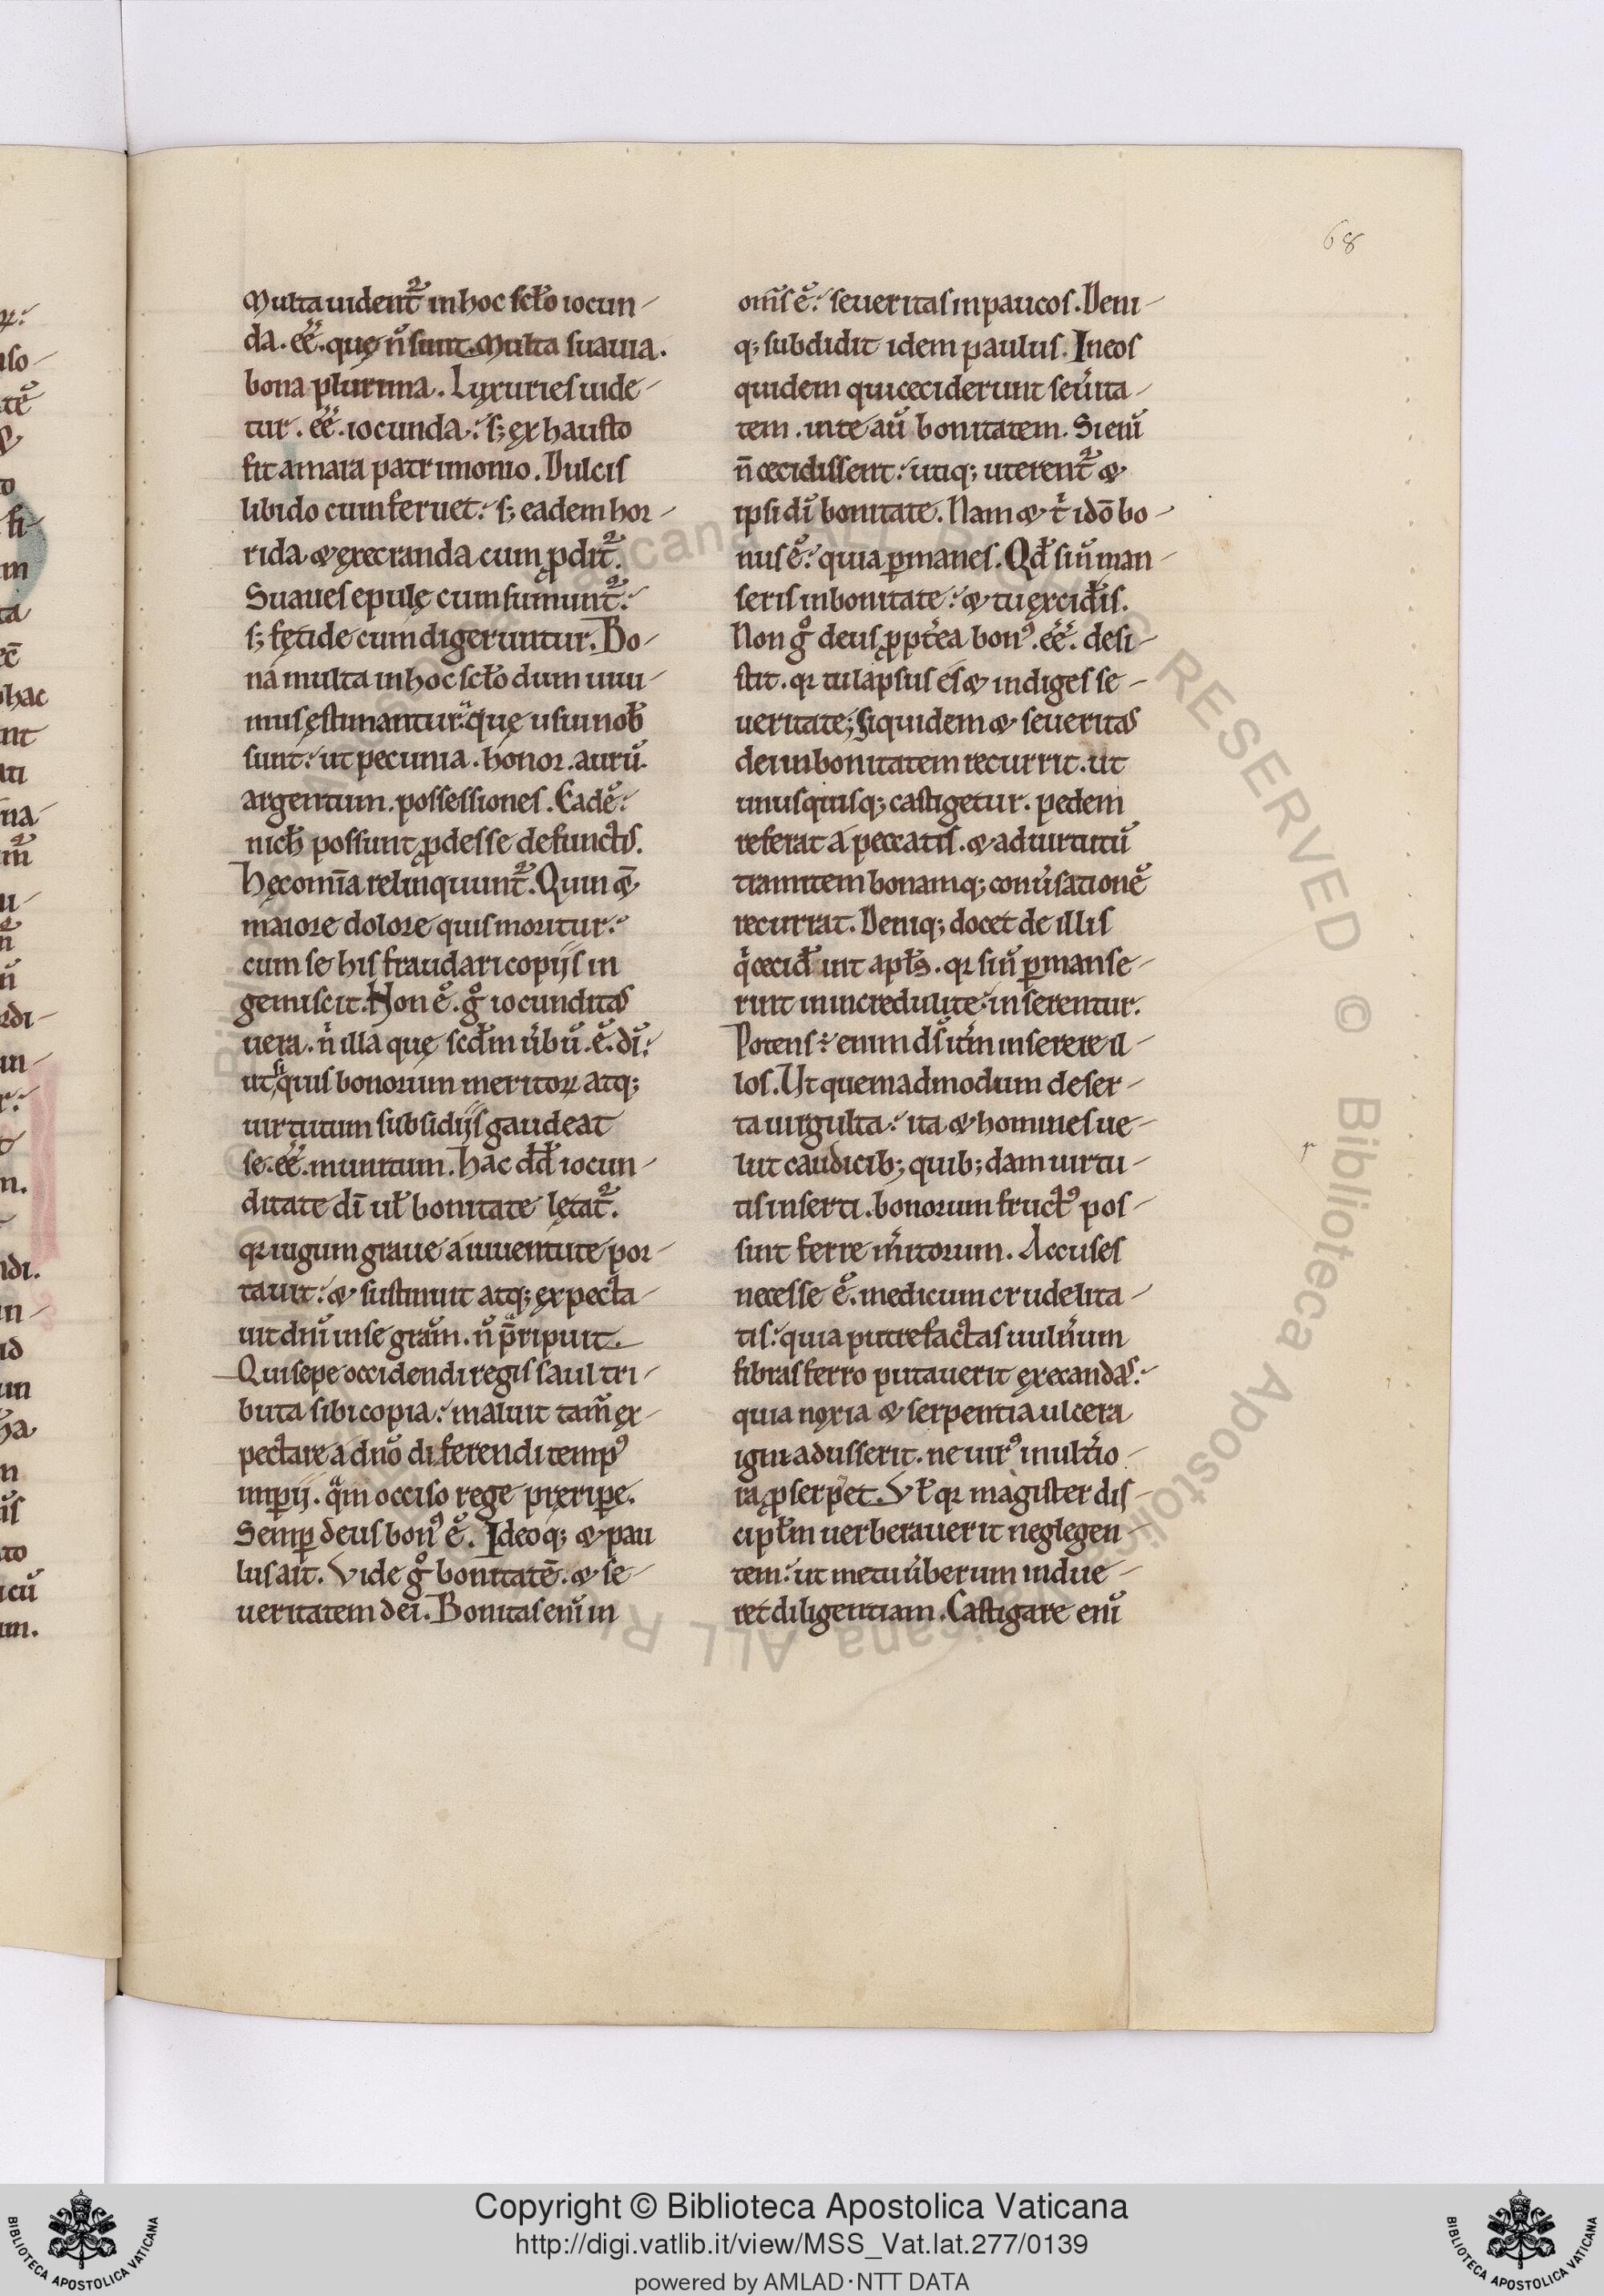 68
Multa uident᷑ in hoc scło iocun-
da. eē. quę ñ sunt. Multa suauia.
bona plurima. Luxuries uide-
tur. eē. iocunda: s; exhausto
fit amara patrimonio. Dulcis
libido cum feruet: s; eadem hor-
rida & execranda cum ꝓdit᷑.
Suaues epulę cum sumunt᷑:
s; fetide cum digeruntur. Bo-
na multa in hoc scło dum uiui-
mus estimantur. quę usui nob̄
sunt: ut pecunia. honor. aurū.
argentum. possessiones. Eadē:
nich̄ possunt ꝓdesse defunctis.
Hęc omīa relinquunt᷑. Quin &
maiore dolore quis moritur:
cum se his fraudari copiis in
gemiscit. Non ē. gͦ iocunditas
uera. nͥ illa quę scd̄m ūbū. ē. dī:
ut quis bonorum meritoꝝ atq;
uirtutum subsidiis gaudeat
se. eē. munitum. Hac dd̄ iocun-
ditate dī uł bonitate lętat᷑.
qꝛ iugum graue a iuuentute por-
tauit: & sustinuit atq; expecta-
uit dnī in se gram̄. ñ p̄ripuit.
Qui sepe occidendi regis saul tri-
buta sibi copia: maluit tam̄ ex-
pectare a dnō differendi tempꝰ
imꝑii. qͣm occiso rege pręriꝑe.
Semꝑ deus bonꝰ ē. Ideoq; & pau
lus ait. Vide gͦ bonitatē. & se-
ueritatem dei. Bonitas enī in
om̄s ē: seueritas in paucos. Deni-
q; subdidit idem paulus. In eos
quidem qui ceciderunt seūita-
tem. in te aū bonitatem. Si enī
ñ cecidissent: utiq; uterent᷑ &
ipsi dī bonitate. Nam & tͥ idō bo-
nus ē: quia ꝑmanes. Qd̄ si ñ man-
seris in bonitate: & tu excid̄is.
Non gͦ deus ꝓpt̄ea bonꝰ. eē. desi-
stit. qꝛ tu lapsus es & indiges se-
ueritate; siquidem & seueritas
dei in bonitatem recurrit. ut
unusquisq; castigetur. pedem
referat a peccatis. & ad uirtutū
tramitem bonamq; conūsationē
recurrat. Deniq; docet de illis
qͥ cecid̄int apłs. qꝛ si ñ ꝑmanse-
rint in incredulite: inserentur.
Potens: enim ds̄ itm̄ inserere il-
los. Ut quemadmodum deser-
ta uirgulta: ita & homines ue-
lut caudicib; quib; dam uirtu-
tis inserti. bonorum fructꝰ pos-
sint ferre m̄itorum. Accuses
necesse ē. medicum crudelita-
tis: quia putrefactas uuln̄um
fibras ferro putauerit execandas:
quia noxia & serpentia ulcera
igni adusserit. ne uirꝰ in ult̄io-
ra ꝓserpet. Vł qꝛ magister dis-
cipłm uerberauerit neglegen-
tem: ut metu ūberum indue-
ret diligentiam. Castigare enī
Copyright © Biblioteca Apostolica Vaticana
http://digi.vatlib.it/view/MSS_Vat.lat.277/0139
powered by AMLAD·NTT DATA